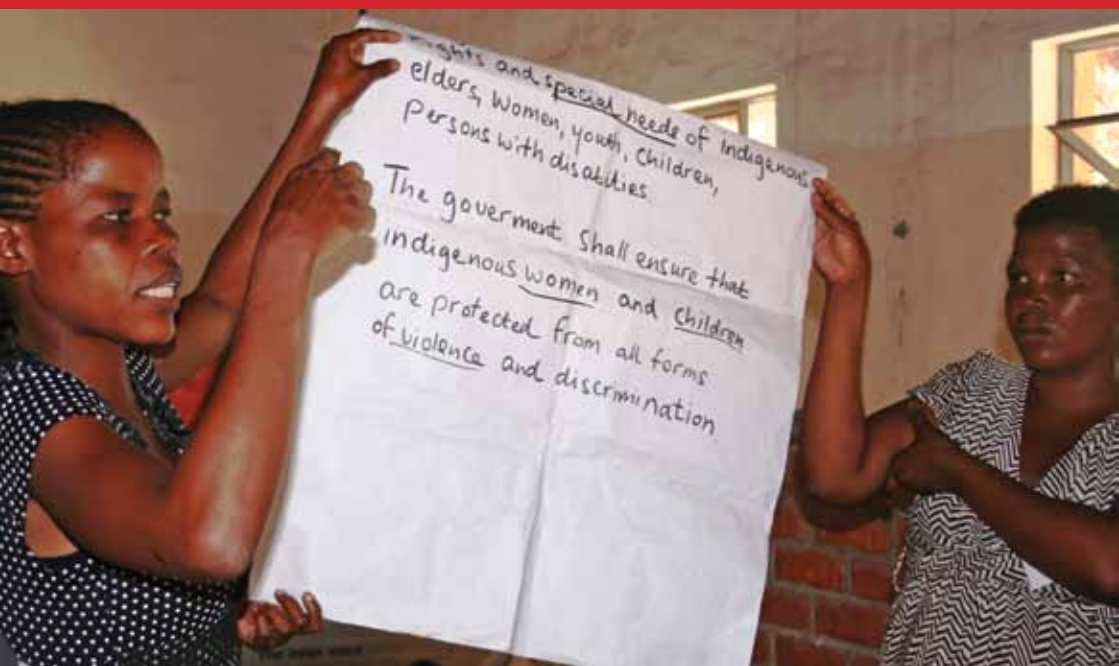 Rights and special needs of Indigenous
elders, Women, youth, Children,
Persons with disabilities.
The goverment Shall ensure that
indigenous women and children
are protected from all forms
of violence and discrimination